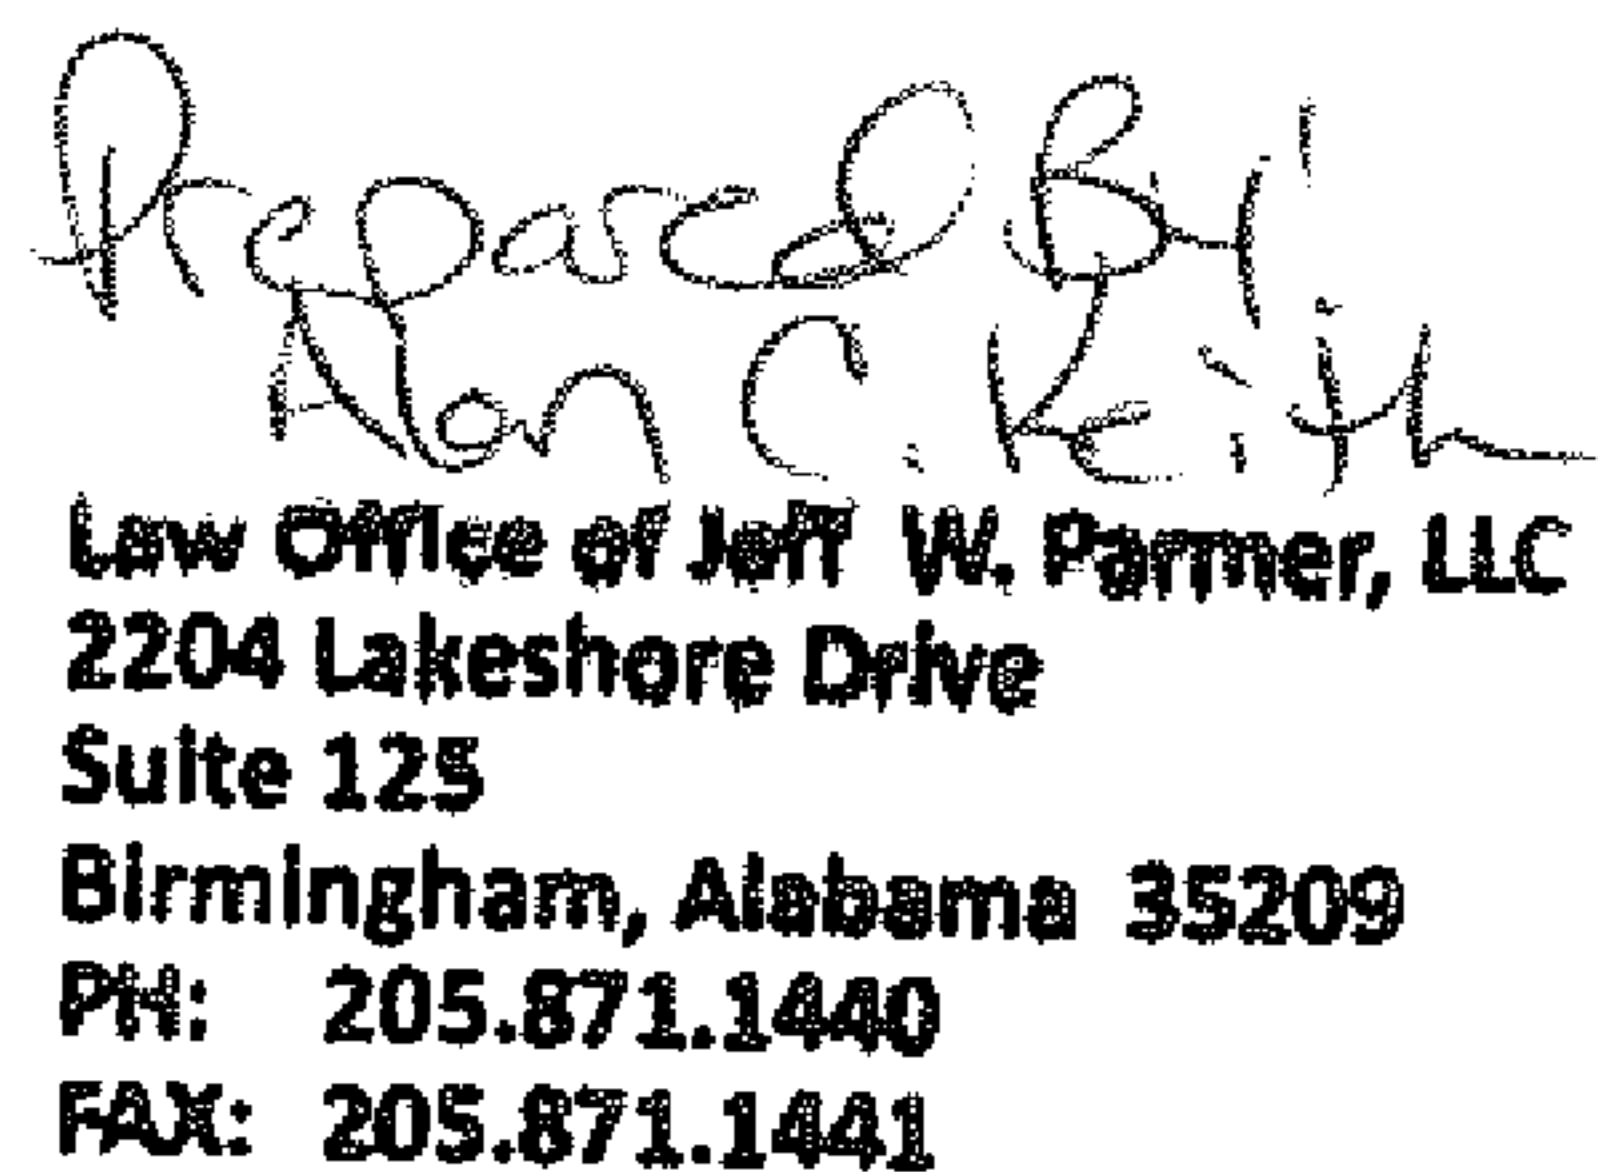 Prepared By:
Alan C. Keith
Law Office of Jeff W. Parmer, LLC
2204 Lakeshore Drive
Suite 125
Birmingham, Alabama 35209
PH: 205.871.1440
FAX: 205.871.1441